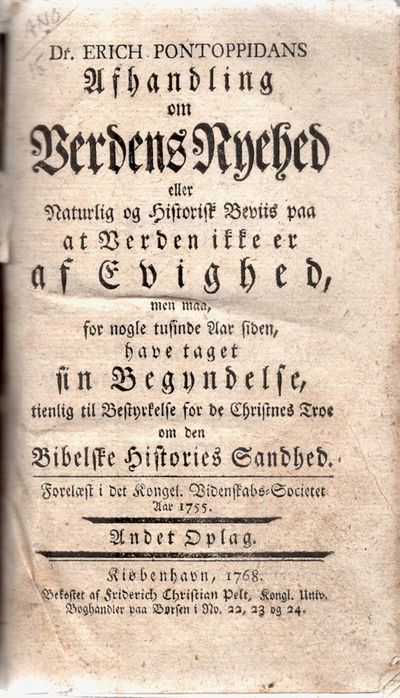 Dr. ERICH PONTOPPIDANS
Afhandling
om
Verdens Nyehed
eller
Naturlig og Historisk Beviis paa
at Verden ikke er
af Evighed,
men maa,
for nogle tusinde Aar siden,
have taget
sin Begyndelse,
tienlig til Bestyrkelse for de Christnes Troe
om den
Bibelske Histories Sandhed.
Forelæst i det Kongel. Videnskabs-Societet
Aar 1755.
Andet Oplag.
Kiøbenhavn, 1768.
Bekostet af Friderich Christian Pelt, Kongl. Univ.
Boghandler paa Børsen i No. 22, 23 og 24.